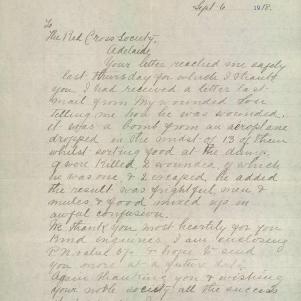 Sept. 6 1918.
To
The Red Cross Society,
Adelaide
Your letter reached me safely
last Thursday for which I thank
you I had received a letter last
mail from my wounded son
telling me how he was wounded,
it was a bomb from an aeroplane
dropped in the midst of 13 of them
whilst sorting good at the dump
9 were killed, 2 wounded, of which
he was one & 2 escaped, he added
the result was frightful, men &
mules & good mixed up in
awful confusion.
We thank you most heartily for your
kind inquiries. I am enclosing
P.N. value & hope to send
you more at a future date
again thanking you & wishing
your noble society all the success